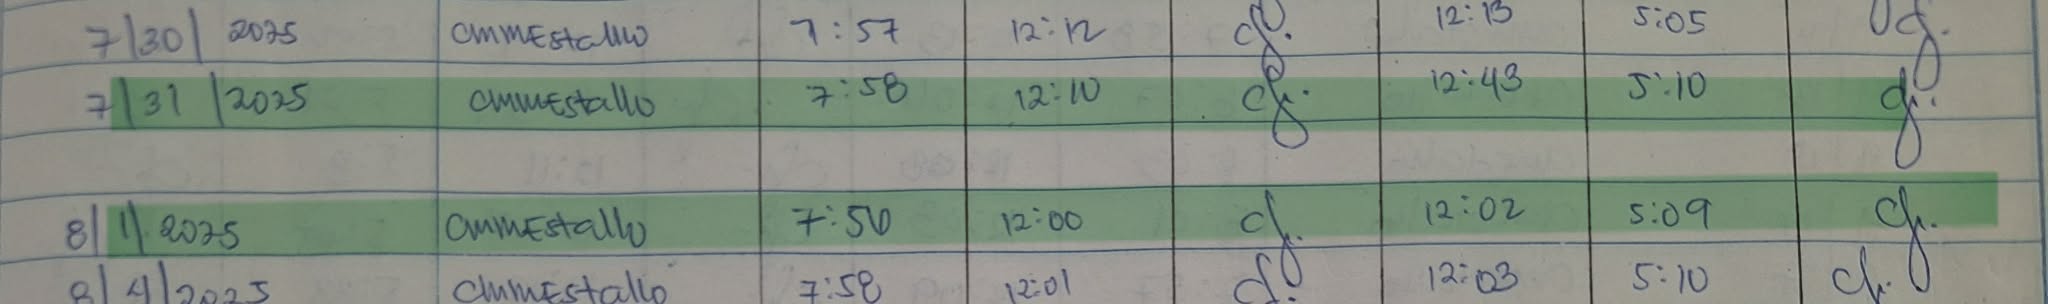 7/30/ 2025 CMMEstallo 7:57 12:12 cf. 12:13 5:05 cf.
7/31/2025 CMMEstallo 7:58 12:10 cf. 12:43 5:10 cf.
8/1/2025 CMMEstallo 7:50 12:00 cf. 12:02 5:09 cf.
8/4/2025 CMMEstallo 7:58 12:01 cf. 12:03 5:10 cf.